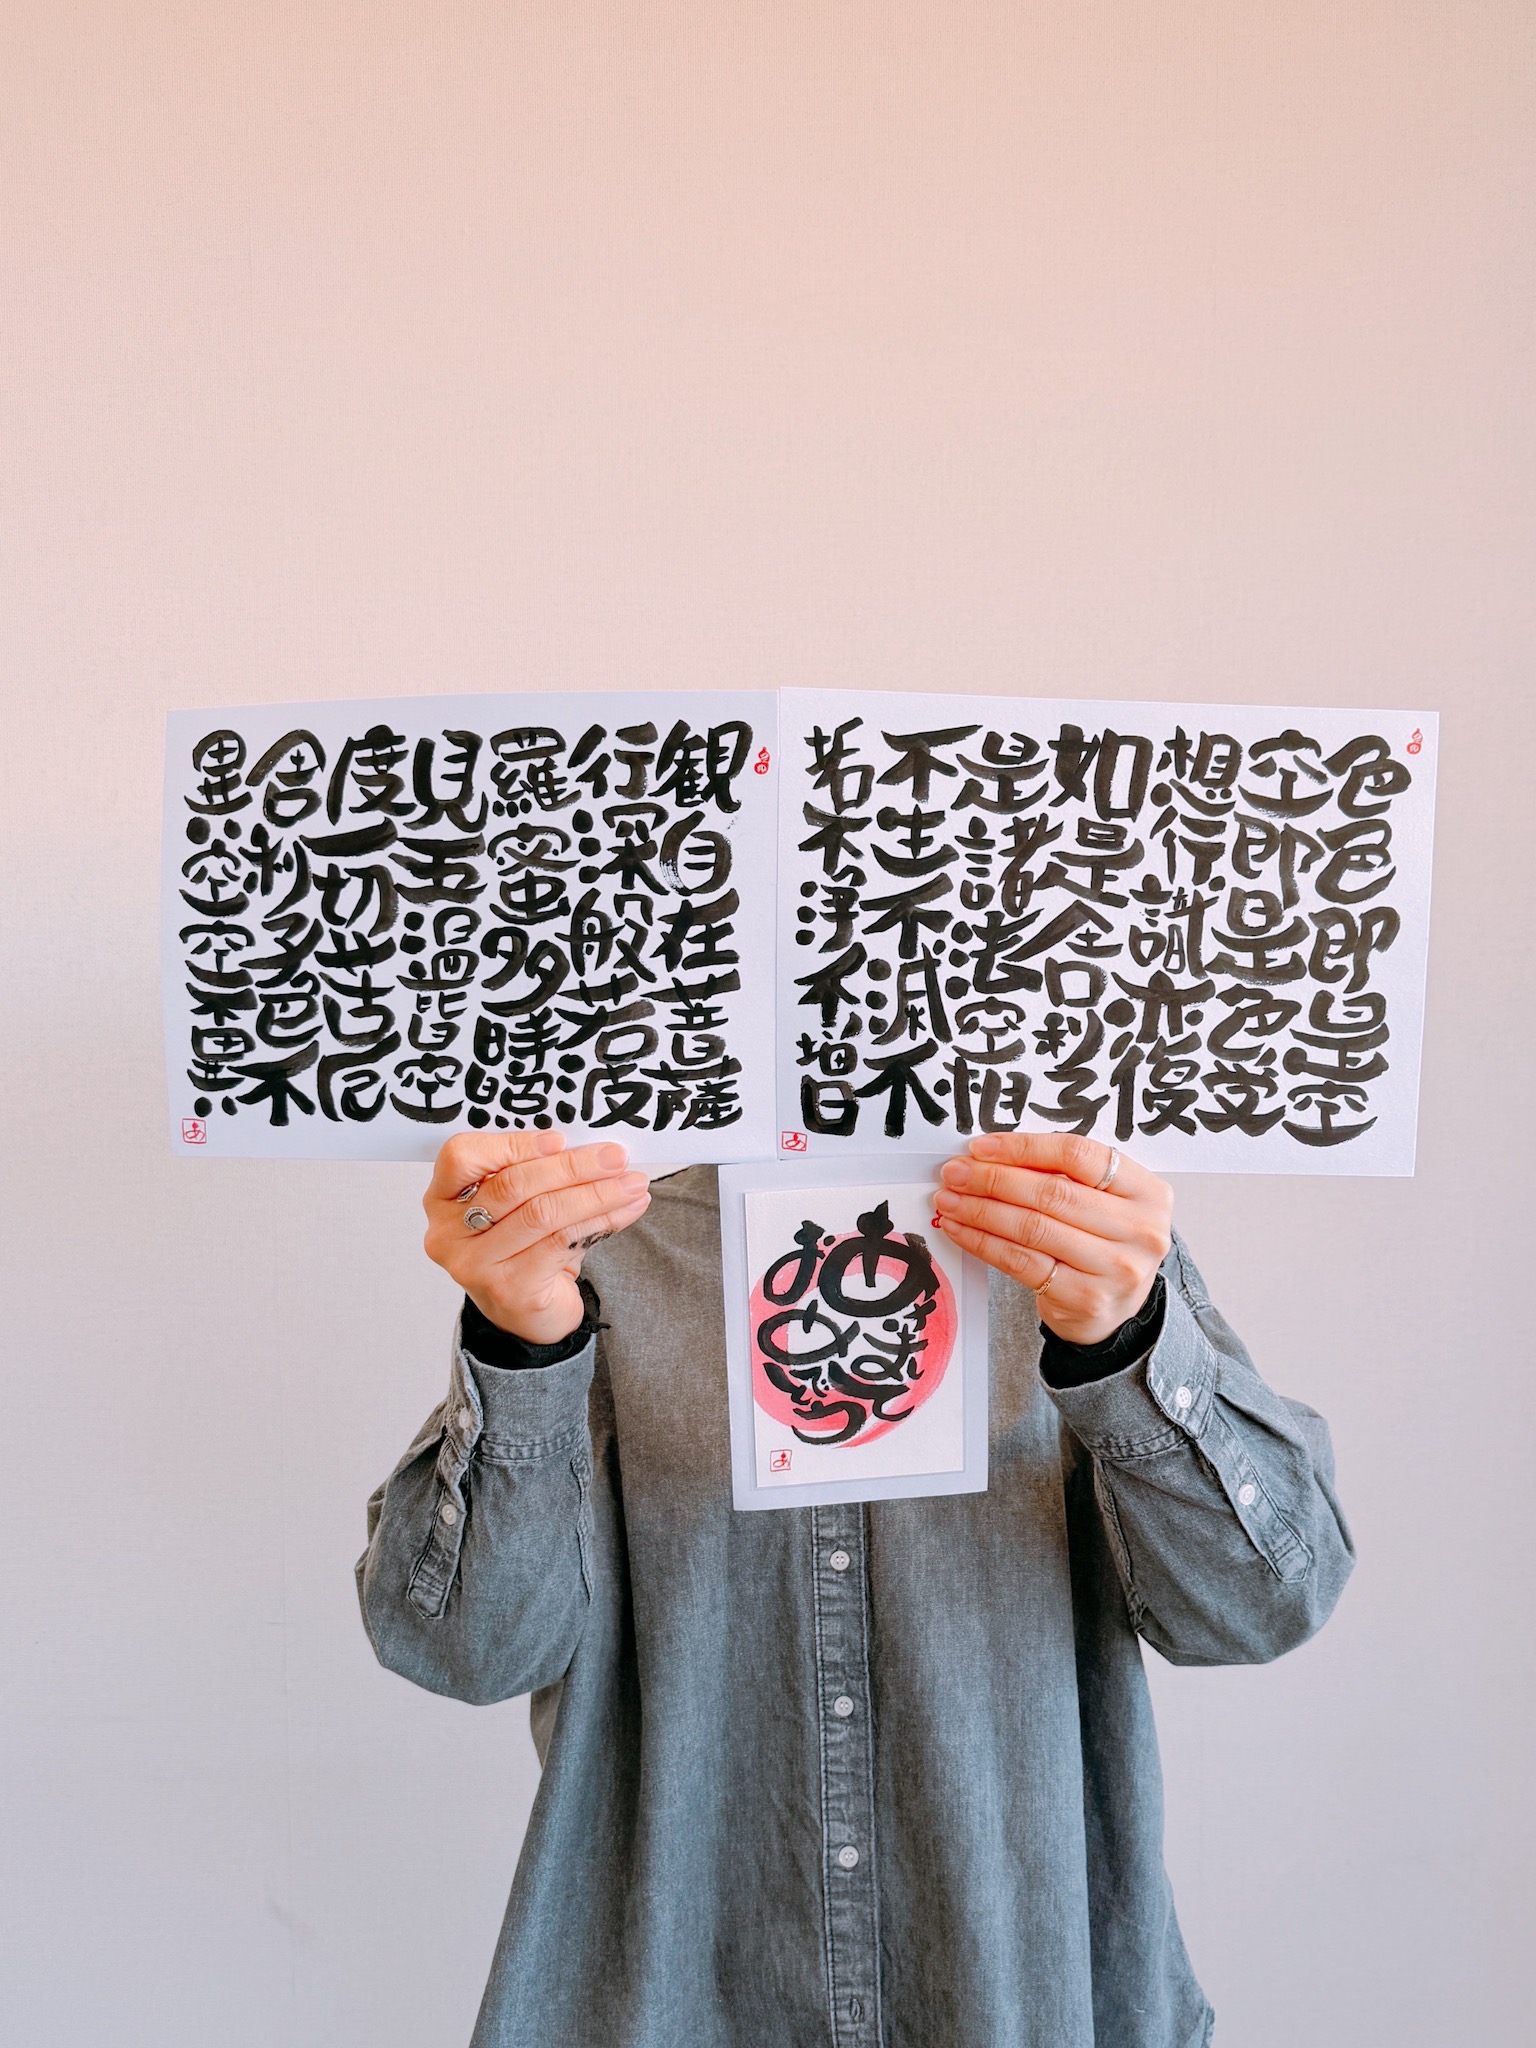 観自在菩薩
行深般若波
羅蜜多時照
見五温皆空
度一切苦厄
舎利子色不
異空空不異
あ
色色即是空
空即是色受
想行識亦復
如是舎利子
是諸法空相
不生不滅不
垢不浄不増
あ
あけまして
おめでとう
あ